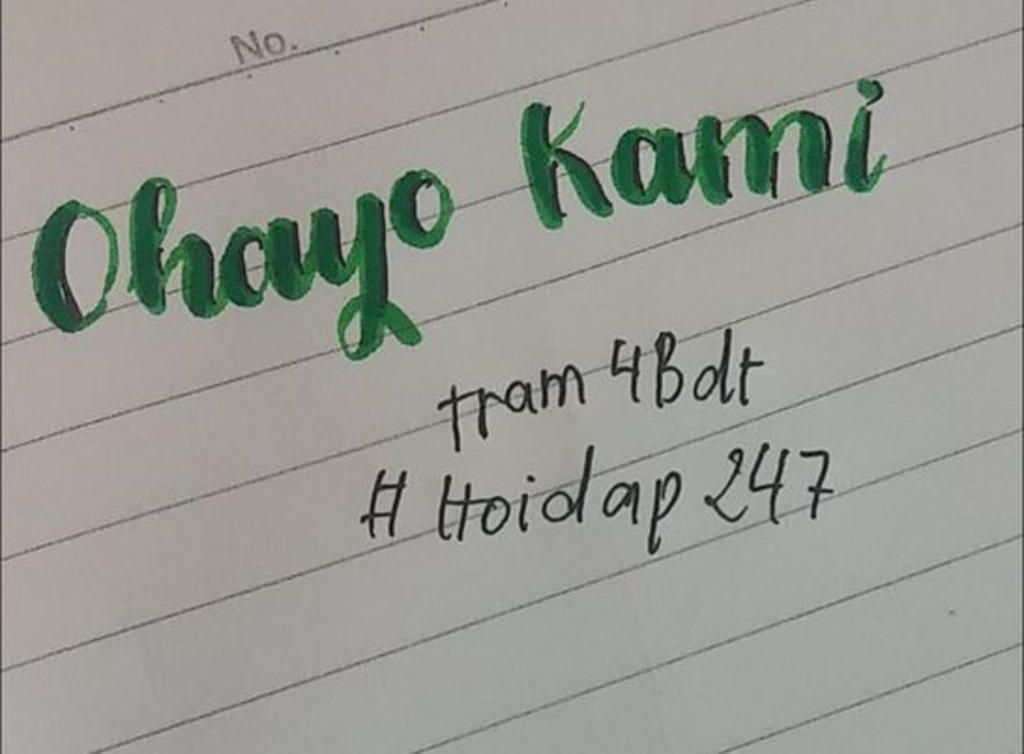 No.
Ohayo Kami
tram 4Bdt
# Hoidap 247